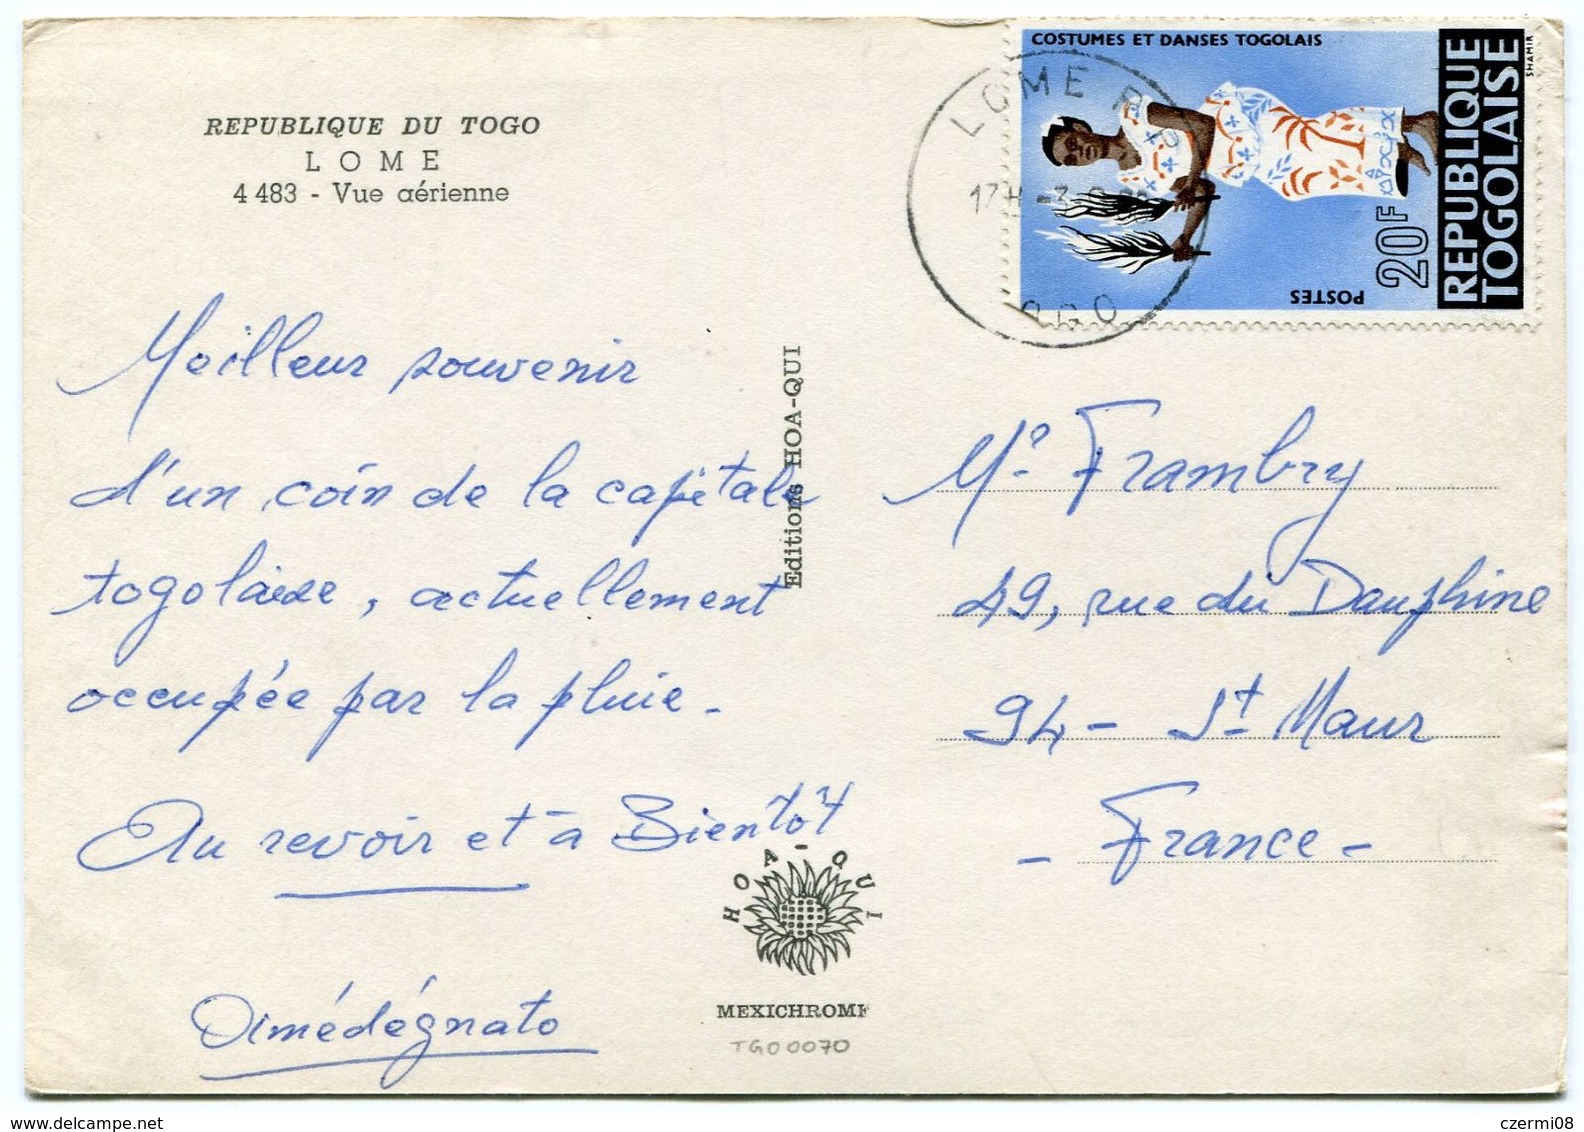 REPUBLIQUE DU TOGO
LOME
4 483 - Vue aérienne
Meilleur souvenir
d'un coin de la capitale
togolaise, actuellement
occupée par la pluie.
Au revoir et à Bientôt
Editions HOA-QUI
HOA-QUI
MEXICHROME
TGO0070
COSTUMES ET DANSES TOGOLAIS
REPUBLIQUE
TOGOLAISE
20F
POSTES
SHAMIR
LOME R.P
17H -3
TOGO
Mr Frambry
49, rue du Dauphine
94 - St Maur
- France -
czermi08